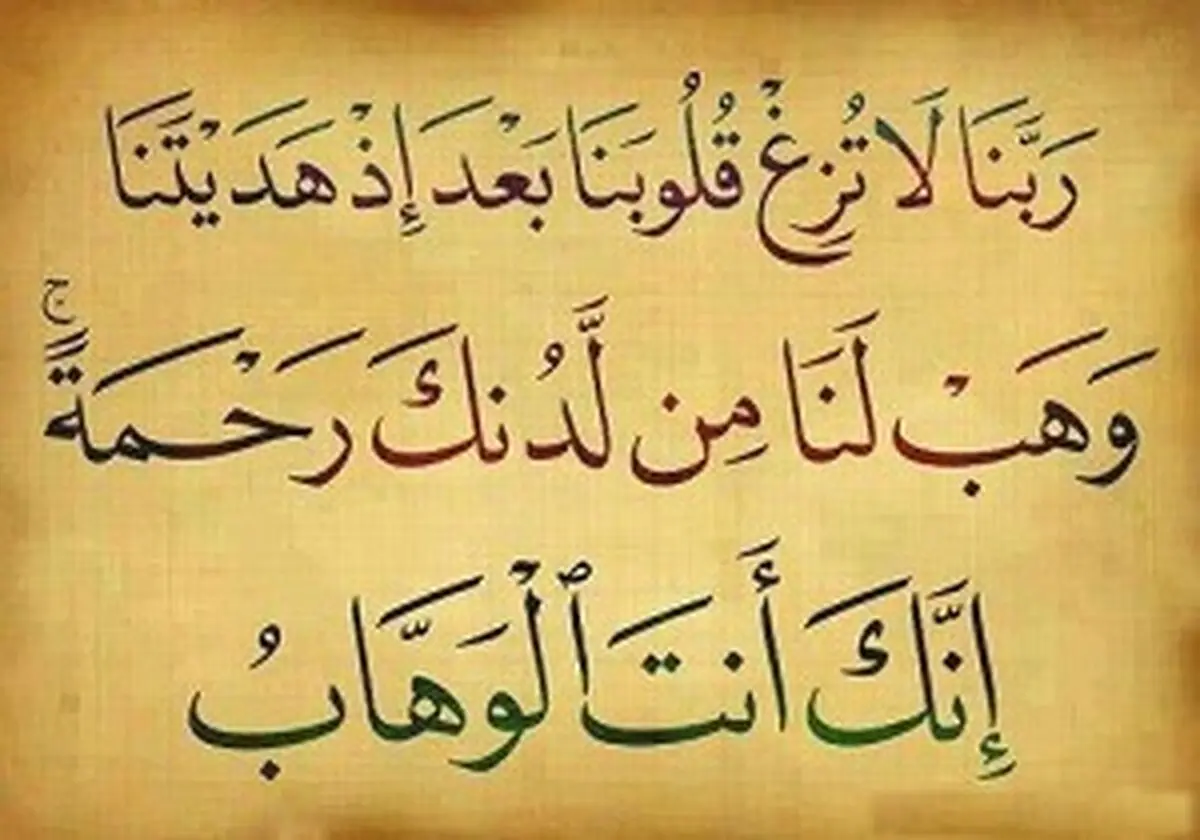 رَبَّنَا لَا تُزِغْ قُلُوبَنَا بَعْدَ إِذْ هَدَيْتَنَا
وَهَبْ لَنَا مِن لَّدُنكَ رَحْمَةً ۚ
إِنَّكَ أَنتَ ٱلْوَهَّابُ